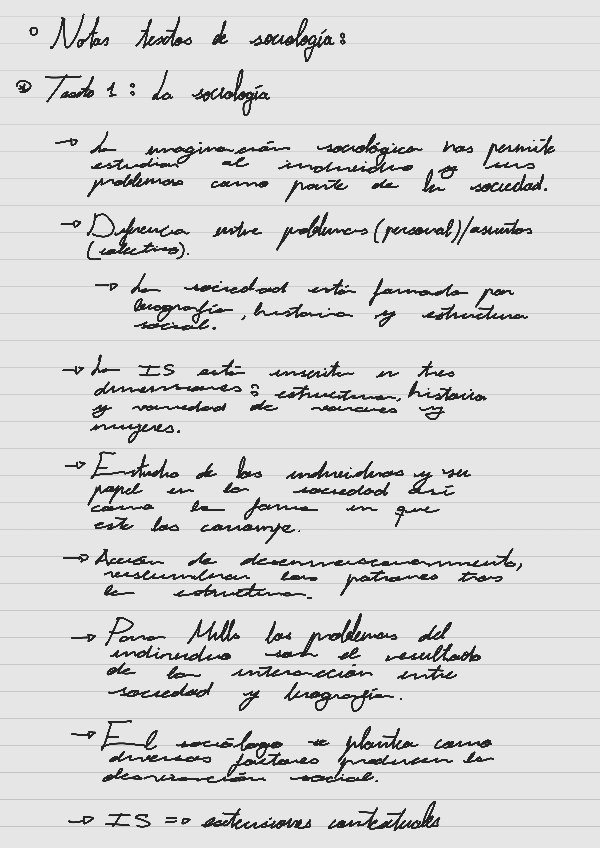 ° Notas textos de sociología:
Texto 1: La sociología
→ La imaginación sociológica nos permite
estudiar al individuo y sus
problemas como parte de la sociedad.
→ Diferencia entre problemas (personal)/asuntos
(colectivo).
→ La sociedad está formada por
biografía, historia y estructura
social.
→ La IS está inscrita en tres
dimensiones: estructura, historia
y variedad de varones y
mujeres.
→ Estudio de los individuos y su
papel en la sociedad así
como la forma en que
este los corrompe.
→ Acción de desenmascaramiento,
vislumbrar los patrones tras
la estructura.
→ Para Mills los problemas del
individuo son el resultado
de la interacción entre
sociedad y biografía.
→ El sociólogo se plantea como
diversos factores producen la
desviación social.
→ IS => extensiones contextuales